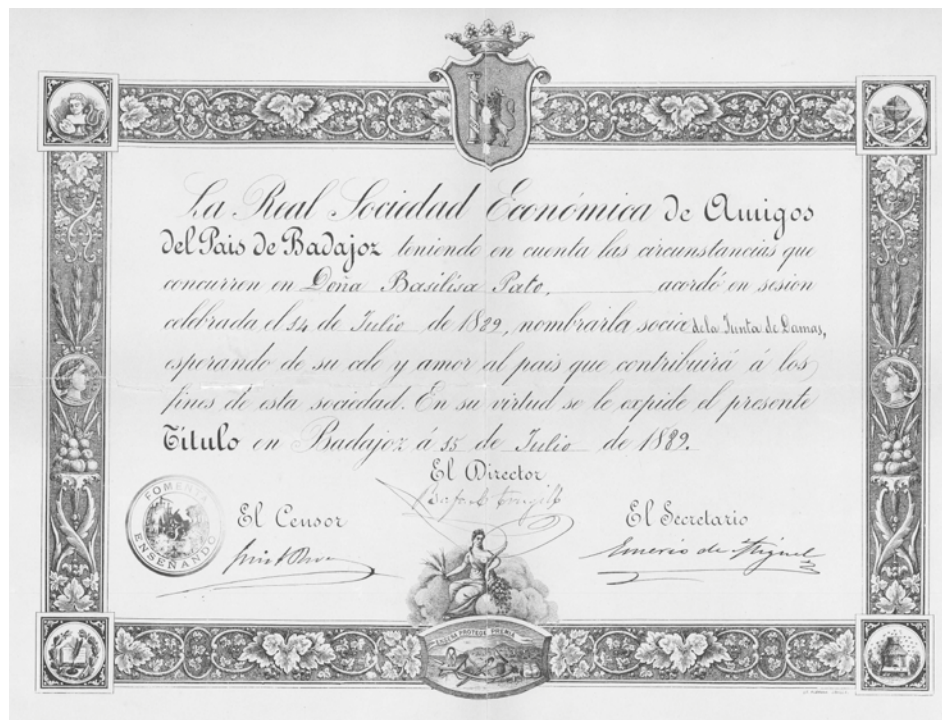 La Real Sociedad Económica de Amigos
del Pais de Badajoz teniendo en cuenta las circunstancias que
concurren en Doña Basilisa Pato, acordó en sesion
celebrada el 14 de Julio de 1889, nombrarla socia de la Junta de Damas,
esperando de su celo y amor al pais que contribuirá á los
fines de esta sociedad. En su virtud se le expide el presente
Título en Badajoz á 15 de Julio de 1889.
El Director
El Censor
El Secretario
Emerio de Miguel
FOMENTA
ENSEÑANDO
PROTEGE PREMIA